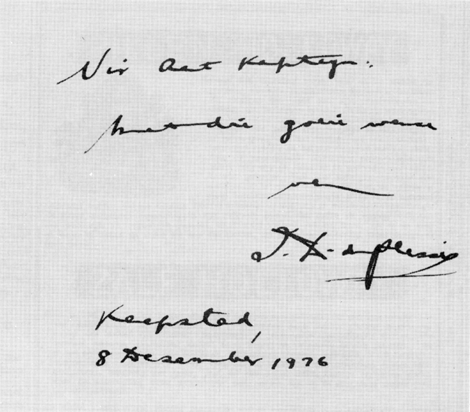 Vir Aat Kapteyn:
met die goeie wense
van
I. D. du Plessis
Kaapstad,
8 Desember 1976